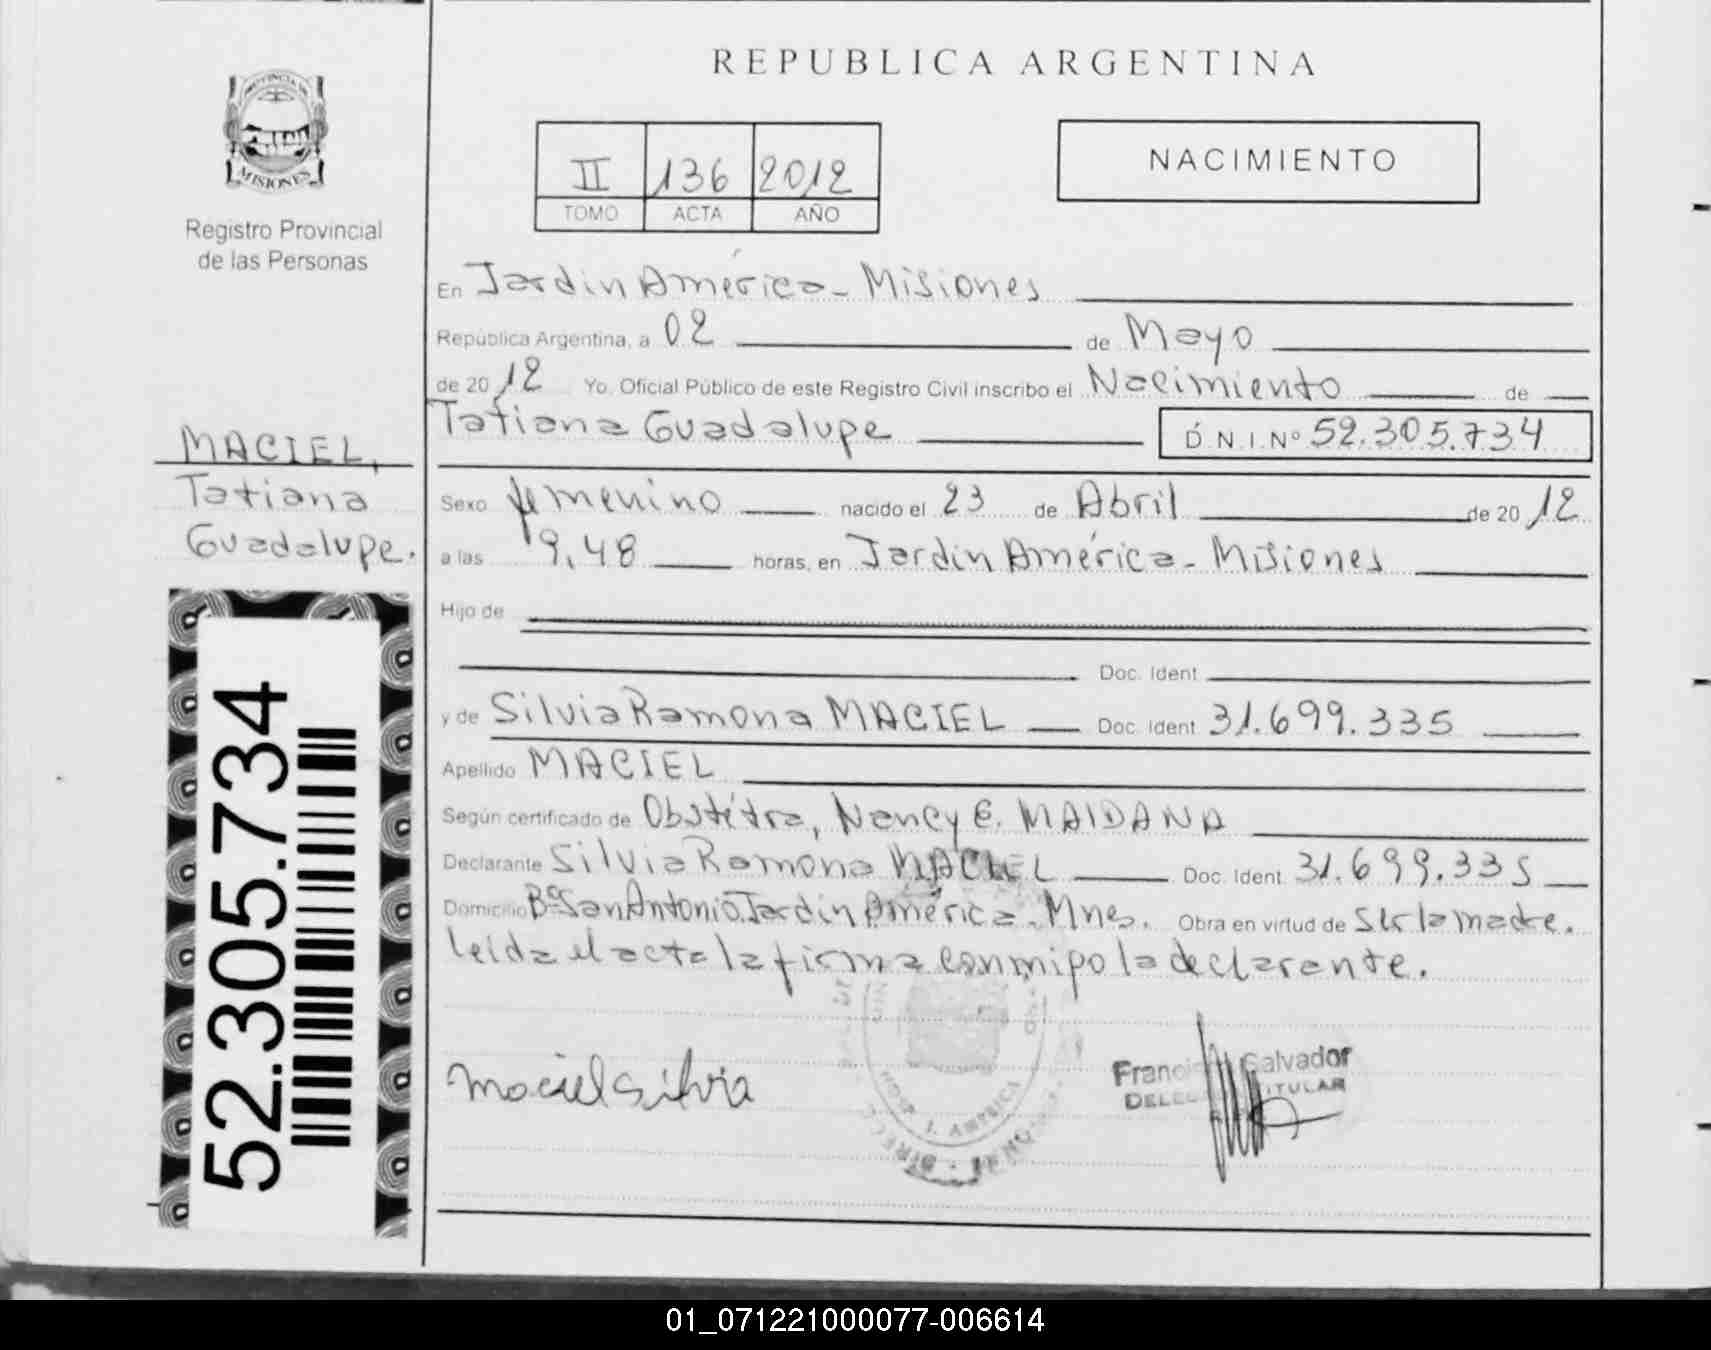 REPUBLICA ARGENTINA
MISIONES
Registro Provincial
de las Personas
II 136 2012
TOMO ACTA AÑO
NACIMIENTO
En Jardin América - Misiones
República Argentina, a 02 de Mayo
de 2012 Yo, Oficial Público de este Registro Civil inscribo el Nacimiento de
Tatiana Guadalupe D.N.I.Nº 52.305.734
MACIEL,
Tatiana
Guadalupe.
Sexo femenino nacido el 23 de Abril de 2012
a las 9,48 horas, en Jardin América - Misiones
Hijo de
Doc. Ident
y de Silvia Ramona MACIEL Doc. Ident 31.699.335
Apellido MACIEL
Según certificado de Obstétra, Nancy E. MAIDANA
Declarante Silvia Ramona MACIEL Doc. Ident. 31.699.335
Domicilio Bº San Antonio, Jardin América - Mnes. Obra en virtud de ser la madre.
leida el acta la firma conmigo la declarante.
52.305.734
maciel silvia
Salvador
TITULAR
J. AMERICA
01_071221000077-006614